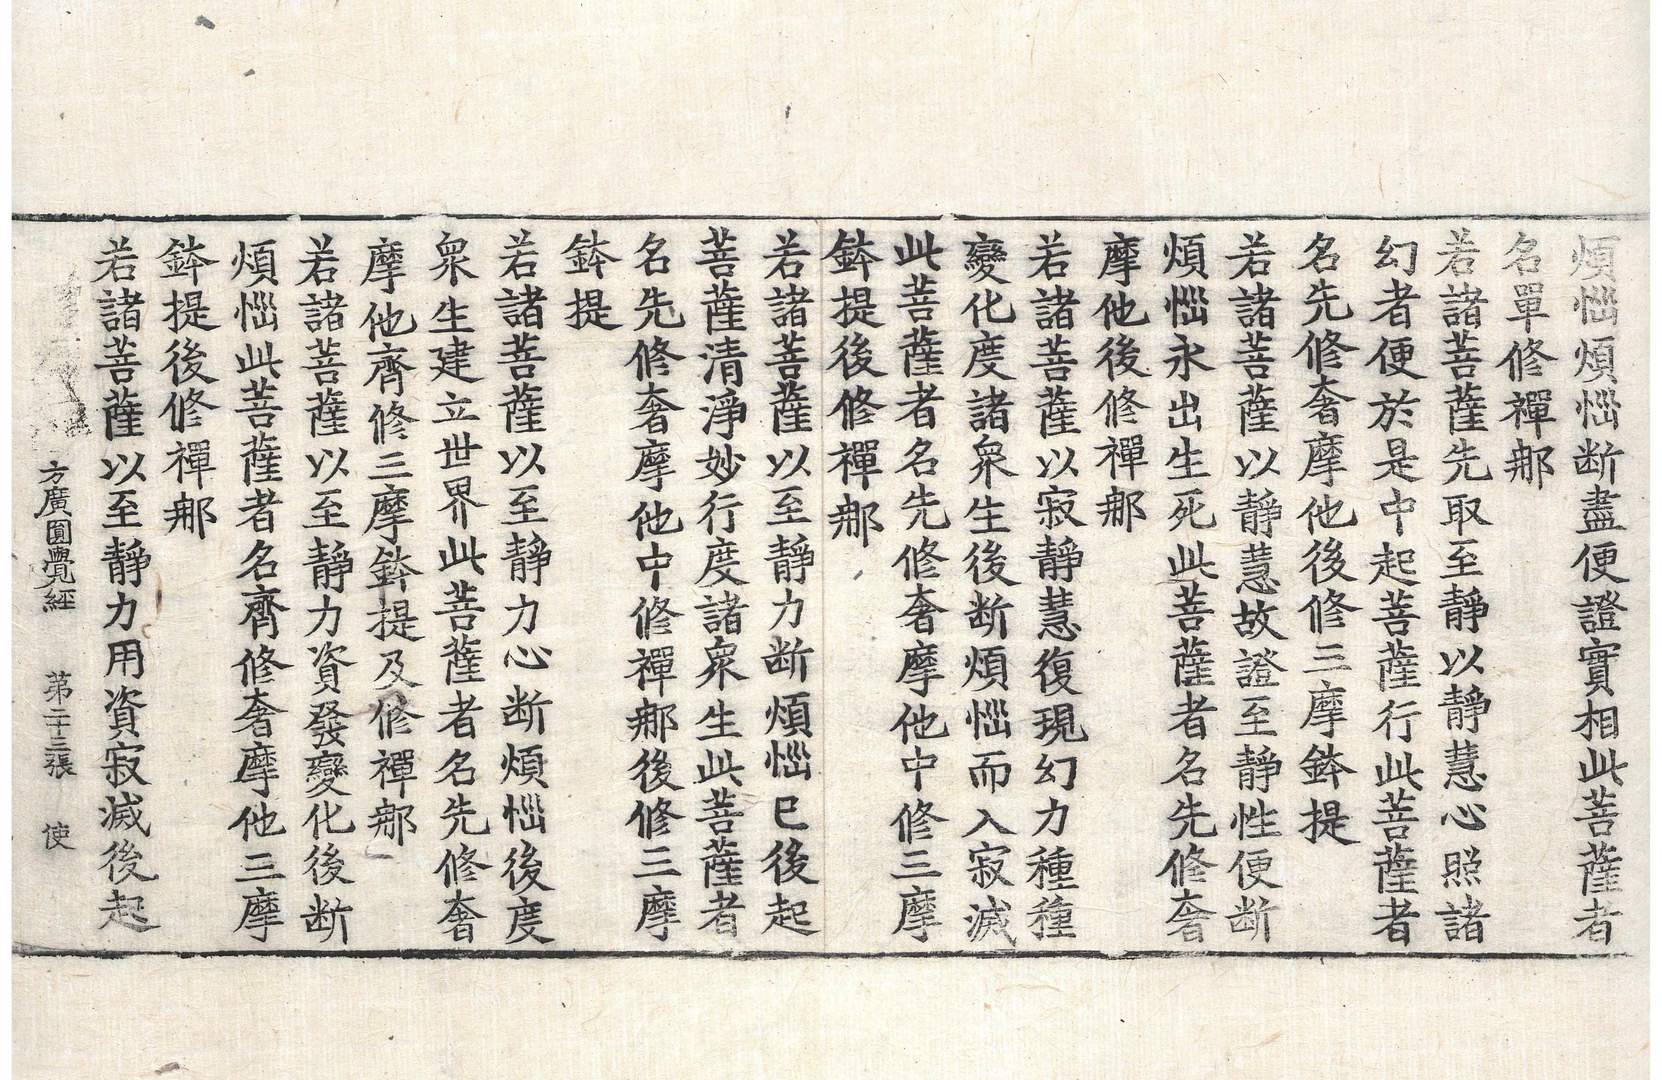 煩惱煩惱断盡便證實相此菩薩者
名單修禪那
若諸菩薩先取至靜以靜慧心照諸
幻者便於是中起菩薩行此菩薩者
名先修奢摩他後修三摩鉢提
若諸菩薩以靜慧故證至靜性便断
煩惱永出生死此菩薩者名先修奢
摩他後修禪那
若諸菩薩以寂靜慧復現幻力種種
變化度諸衆生後断煩惱而入寂滅
此菩薩者名先修奢摩他中修三摩
鉢提後修禪那
若諸菩薩以至靜力断煩惱已後起
菩薩清淨妙行度諸衆生此菩薩者
名先修奢摩他中修禪那後修三摩
鉢提
若諸菩薩以至靜力心断煩惱後度
衆生建立世界此菩薩者名先修奢
摩他齊修三摩鉢提及修禪那
若諸菩薩以至靜力資發變化後断
煩惱此菩薩者名齊修奢摩他三摩
鉢提後修禪那
若諸菩薩以至靜力用資寂滅後起
方廣圓覺經 第二十三張 使